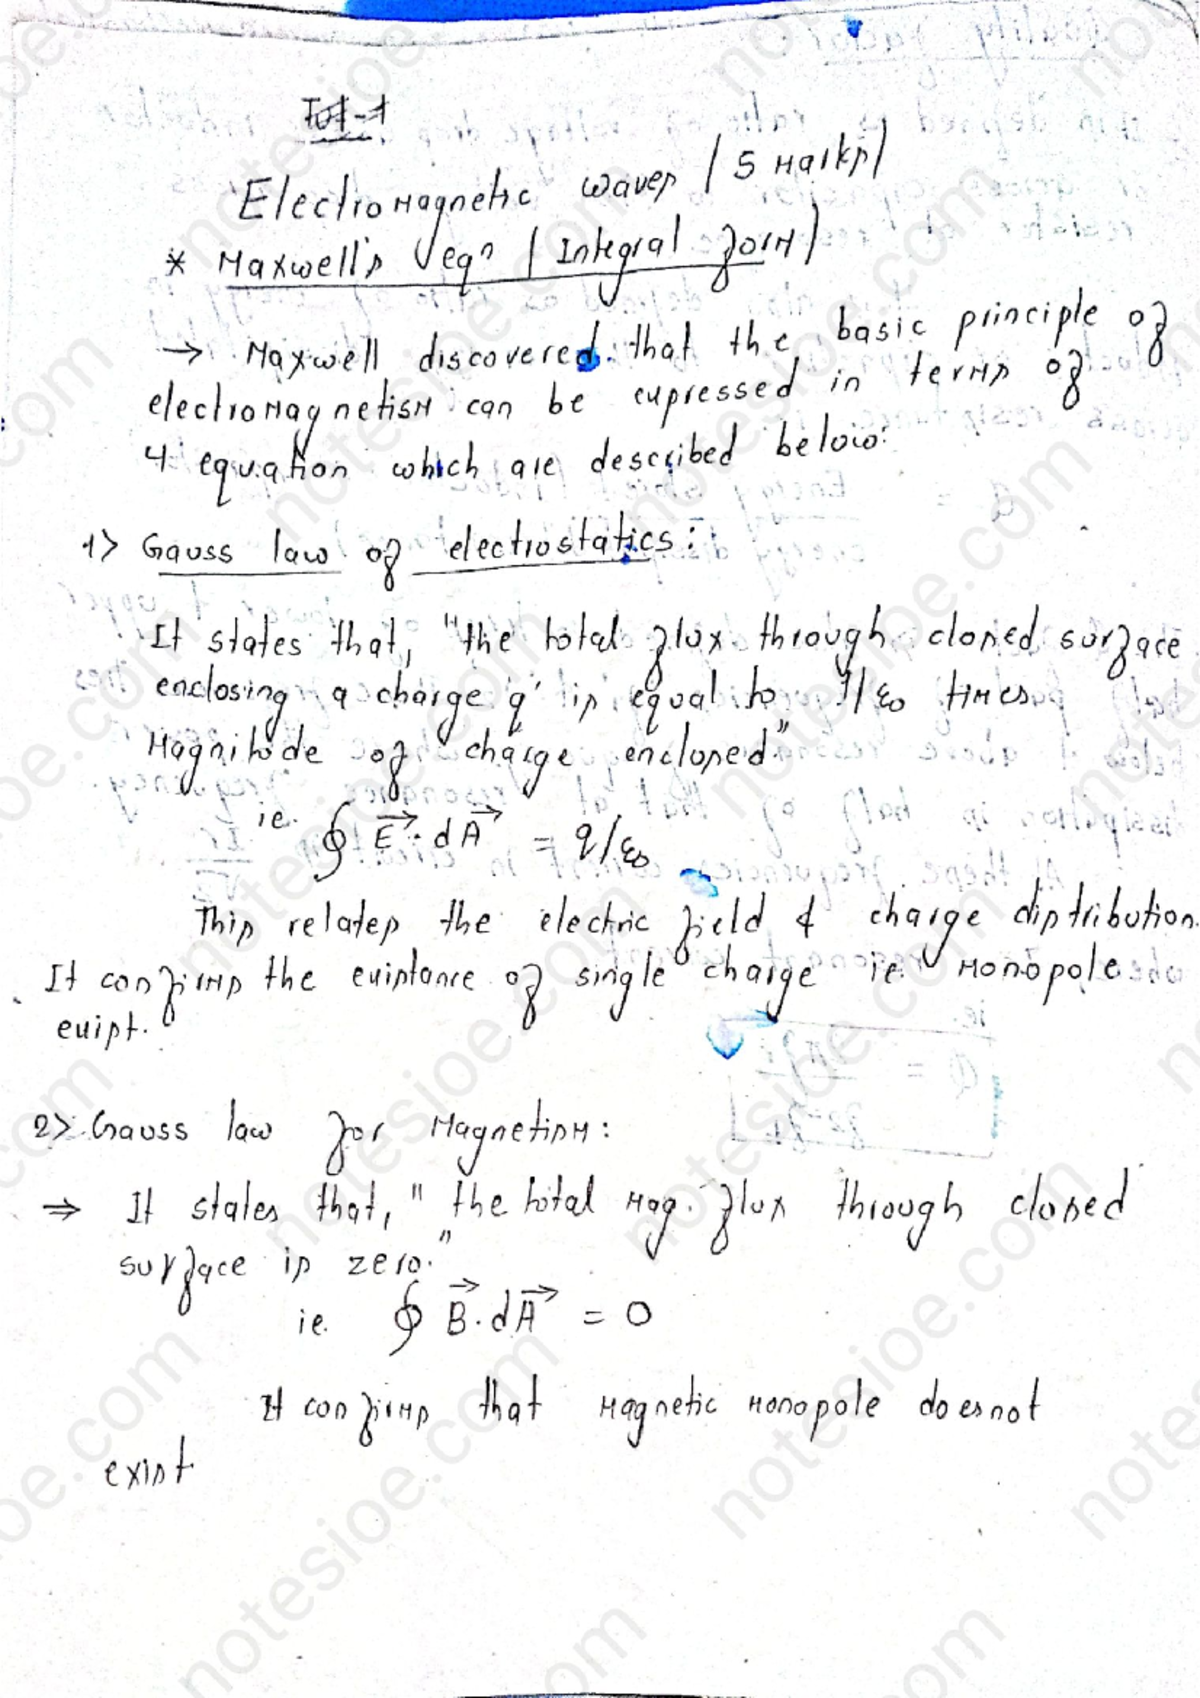 Electromagnetic waves (5 marks)
* Maxwell's eqn (Integral form)
→ Maxwell discovered that the basic principle of
electromagnetism can be expressed in terms of
4 equation which are described below:
1> Gauss law of electrostatics:
It states that, "the total flux through closed surface
enclosing a charge 'q' is equal to 1/ε₀ times
Magnitude of charge enclosed"
ie. ∮ E⃗ · dA⃗ = q/ε₀
This relates the electric field & charge distribution.
It confirms the existance of single charge ie. monopole
exist.
2> Gauss law for Magnetism:
⇒ It states that, "the total mag. flux through closed
surface is zero."
ie. ∮ B⃗ · dA⃗ = 0
It confirms that magnetic monopole doesnot
exist
notesioe.com